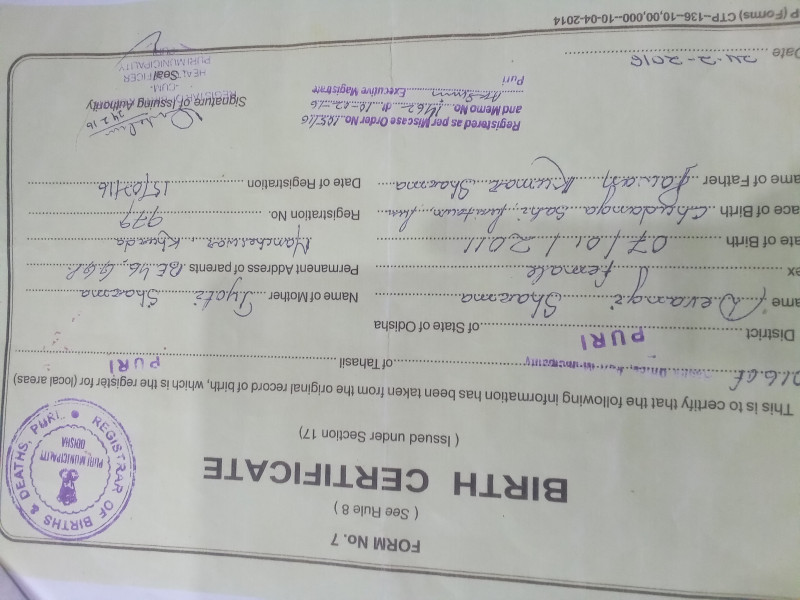 FORM No. 7
( See Rule 8 )
BIRTH CERTIFICATE
( Issued under Section 17)
REGISTRAR OF BIRTHS & DEATHS, PURI.
PURI MUNICIPALITY
ODISHA
This is to certify that the following information has been taken from the original record of birth, which is the register for (local areas)
of Tahasil PURI
District PURI of State of Odisha
ame Devangi Sharma Name of Mother Jyoti Sharma
ex female Permanent Address of parents BE 46, G.G.P.
ate of Birth 07/01/2011 Mancheswar, Khurda
ace of Birth Chudanga Sahi, Registration No. 979
ame of Father Kumar Sharma Date of Registration 15/02/16
Registered as per Miscase Order No. 105/16
and Memo No. 1462 dt 10-02-16
Executive Magistrate
Puri
Signature of Issuing Authority
24.2.16
REGISTRAR
-CUM-
HEALTH OFFICER
Seal
PURI MUNICIPALITY
PURI
Date 24-2-2016
P (Forms) CTP–136–10,00,000–10-04-2014